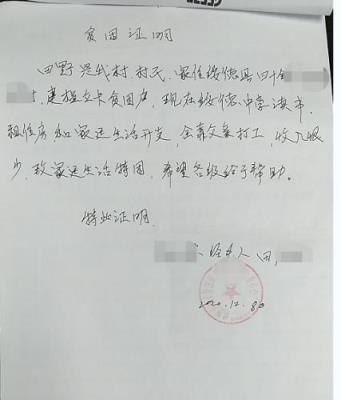 贫困证明
田野 是我村村民,家住绥德县四十铺
建档立卡贫困户,现在绥德中学读书,
租住房和家庭生活开支,全靠父亲打工,收入很
少,致家庭生活特困,希望各级给予帮助。
特此证明.
经手人 田
2020.12.